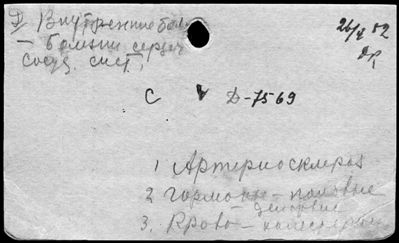 D Внутренние бол.
26/X 52
— болезни сердеч
сосуд. сист.
С D-7569
1 Артериосклероз
2 гормоны — половые
3. Крово — холестерин